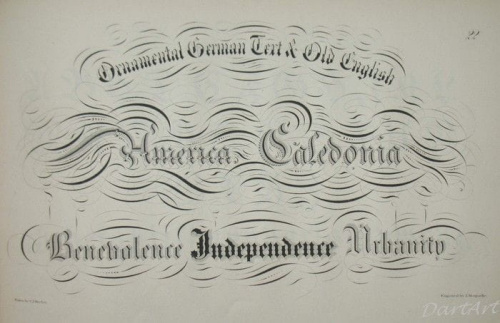 22
Ornamental German Text & Old English
America, Caledonia
Benevolence Independence Urbanity
DartArt